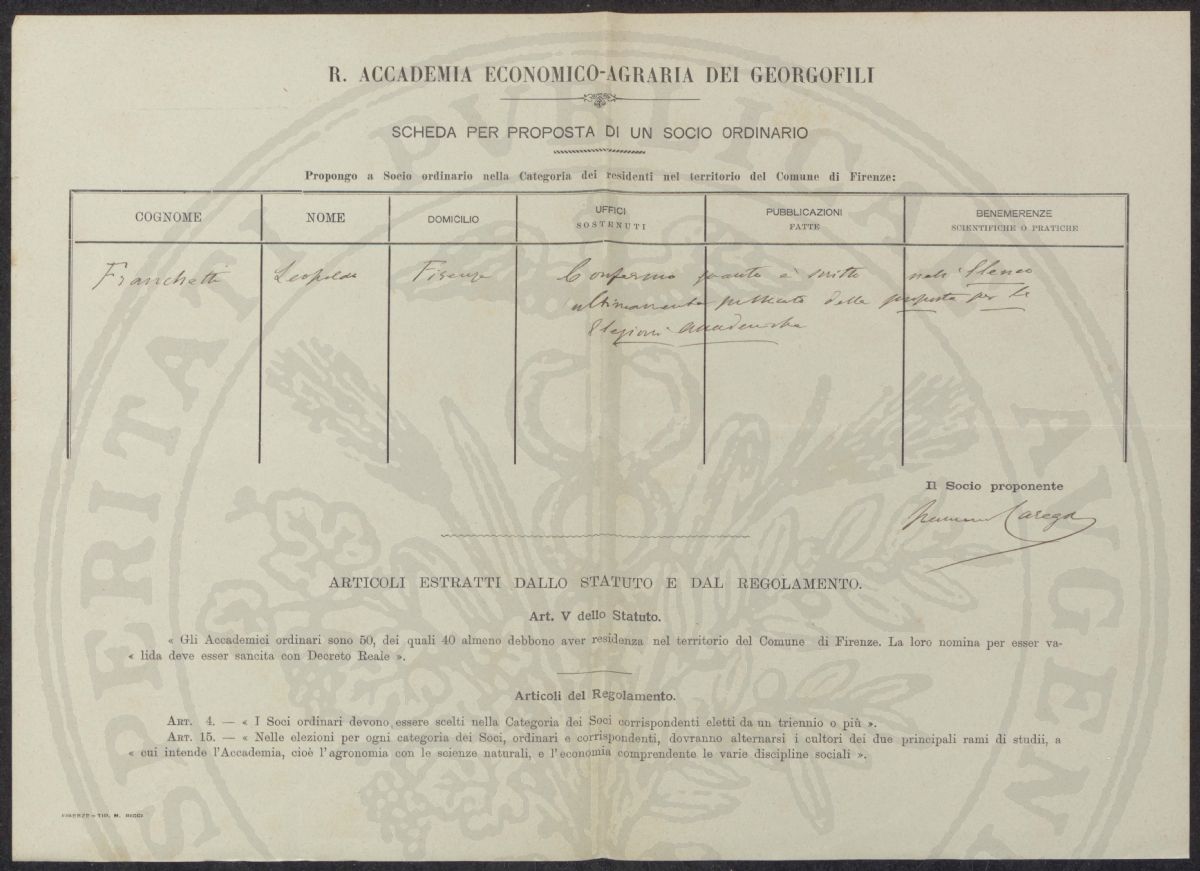 R. ACCADEMIA ECONOMICO-AGRARIA DEI GEORGOFILI
SCHEDA PER PROPOSTA DI UN SOCIO ORDINARIO
Propongo a Socio ordinario nella Categoria dei residenti nel territorio del Comune di Firenze:
COGNOME NOME DOMICILIO UFFICI SOSTENUTI PUBBLICAZIONI FATTE BENEMERENZE SCIENTIFICHE O PRATICHE
Franchetti Leopoldo Firenze Confermo quanto è scritto nell'Elenco
ultimamente pubblicato delle proposte per le
Elezioni Accademiche
Il Socio proponente
Carega
ARTICOLI ESTRATTI DALLO STATUTO E DAL REGOLAMENTO.
Art. V dello Statuto.
« Gli Accademici ordinari sono 50, dei quali 40 almeno debbono aver residenza nel territorio del Comune di Firenze. La loro nomina per esser va-
« lida deve esser sancita con Decreto Reale ».
Articoli del Regolamento.
ART. 4. — « I Soci ordinari devono essere scelti nella Categoria dei Soci corrispondenti eletti da un triennio o più ».
ART. 15. — « Nelle elezioni per ogni categoria dei Soci, ordinari e corrispondenti, dovranno alternarsi i cultori dei due principali rami di studii, a
« cui intende l'Accademia, cioè l'agronomia con le scienze naturali, e l'economia comprendente le varie discipline sociali ».
FIRENZE - TIP. M. RICCI
PROSPERITATI PVBLICAE AVGENDAE